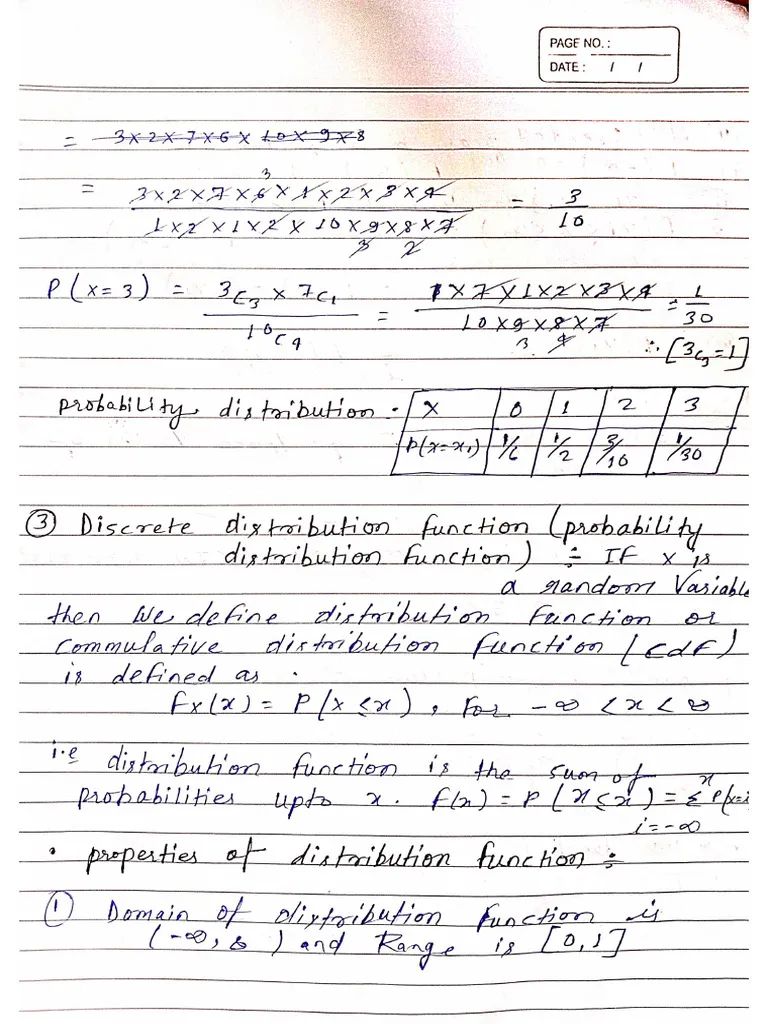 PAGE NO. :
DATE : / /
= 3×2×7×6× 10×9×8
3
= 3×2×7×6×1×2×3×4 / 1×2×1×2×10×9×8×7 = 3/10
3 2
P(x=3) = 3C3 × 7C1 / 10C4 = 1×7×1×2×3×4 / 10×9×8×7 = 1/30
3
∴ [3C3=1]
probability distribution :- X 0 1 2 3
P(x=x1) 1/6 1/2 3/10 1/30
③ Discrete distribution function (probability
distribution function) ÷ If x is
a random Variable
then We define distribution function or
Commulative distribution function (cdf)
is defined as .
Fx(x) = P(x≤x), For -∞ < x < ∞
i.e distribution function is the sum of
probabilities upto x. F(x) = P(x≤x) = Σ P(x=i
x
i=-∞
• properties of distribution function ÷
① Domain of distribution function is
(-∞, ∞) and Range is [0,1]